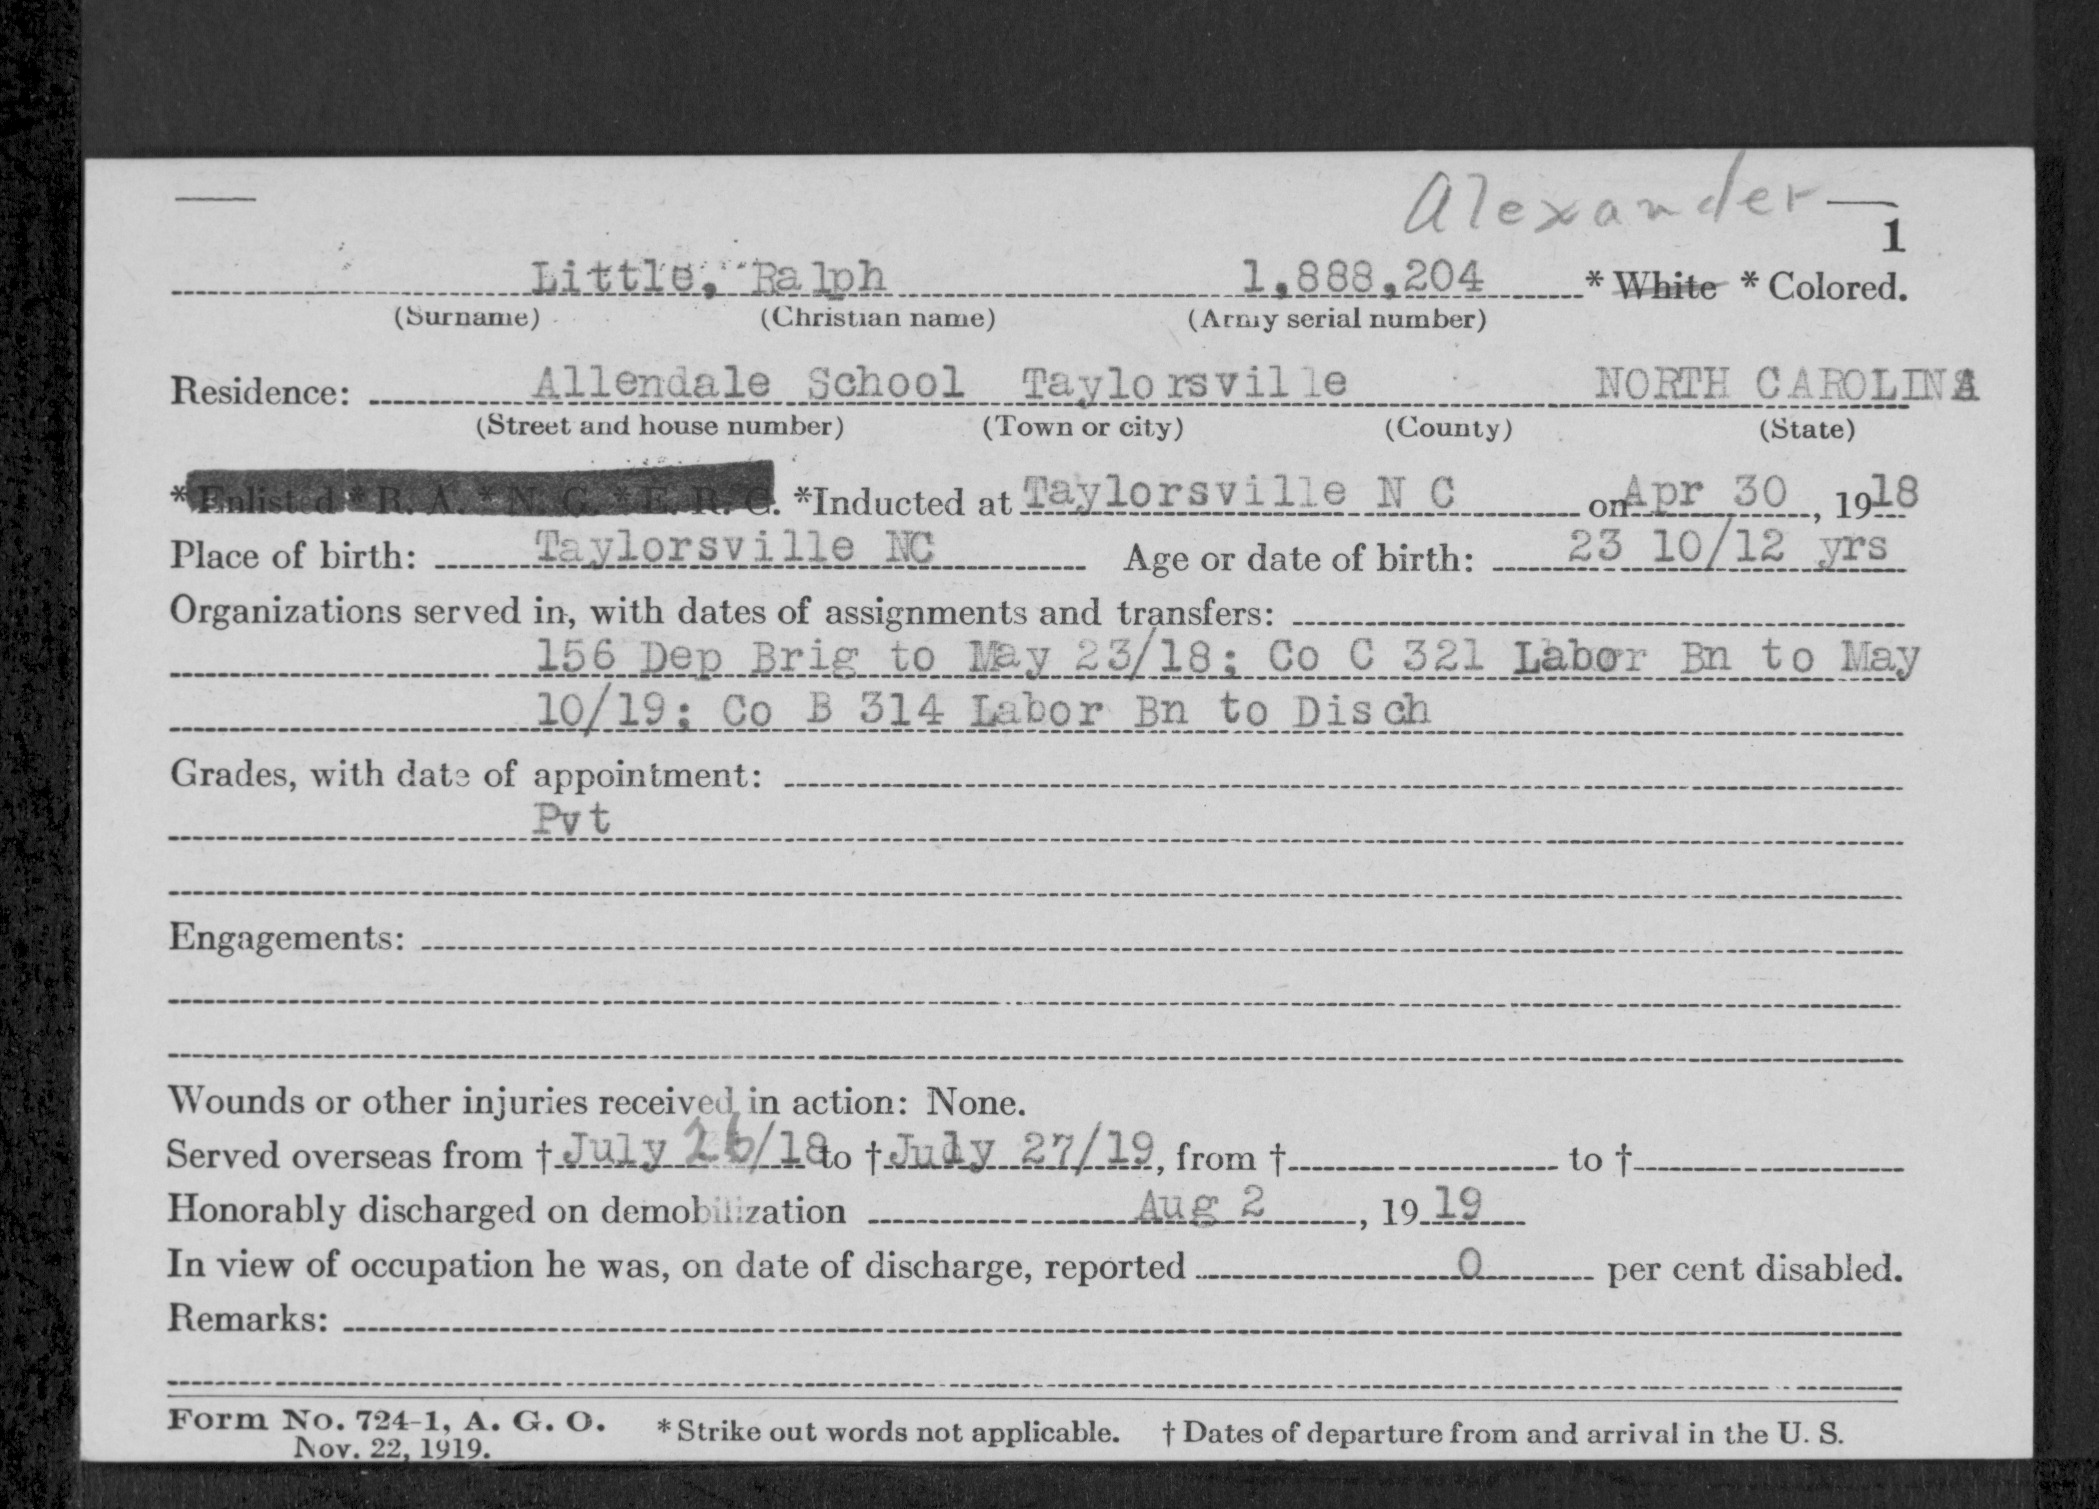 Alexander
1
Little, Ralph 1,888,204 * White * Colored.
(Surname) (Christian name) (Army serial number)
Residence: Allendale School Taylorsville NORTH CAROLINA
(Street and house number) (Town or city) (County) (State)
*Enlisted * R. A. * N. G. * E. R. C. *Inducted at Taylorsville N C on Apr 30, 1918
Place of birth: Taylorsville NC Age or date of birth: 23 10/12 yrs
Organizations served in, with dates of assignments and transfers:
156 Dep Brig to May 23/18; Co C 321 Labor Bn to May
10/19; Co B 314 Labor Bn to Disch
Grades, with date of appointment:
Pvt
Engagements:
Wounds or other injuries received in action: None.
Served overseas from † July 26/18 to † July 27/19, from † to †
Honorably discharged on demobilization Aug 2, 1919
In view of occupation he was, on date of discharge, reported 0 per cent disabled.
Remarks:
Form No. 724-1, A. G. O. * Strike out words not applicable. † Dates of departure from and arrival in the U. S.
Nov. 22, 1919.